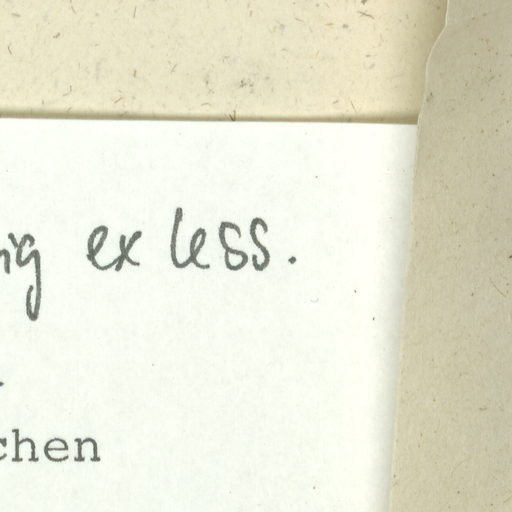 ig ex less.
chen